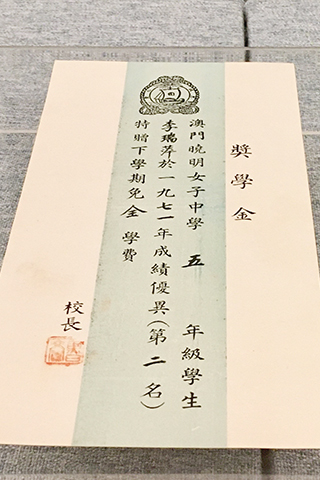 獎學金
澳門曉明女子中學 五 年級學生
李瑞萍於一九七一年成績優異(第二名)
特贈下學期免全 學費
校長